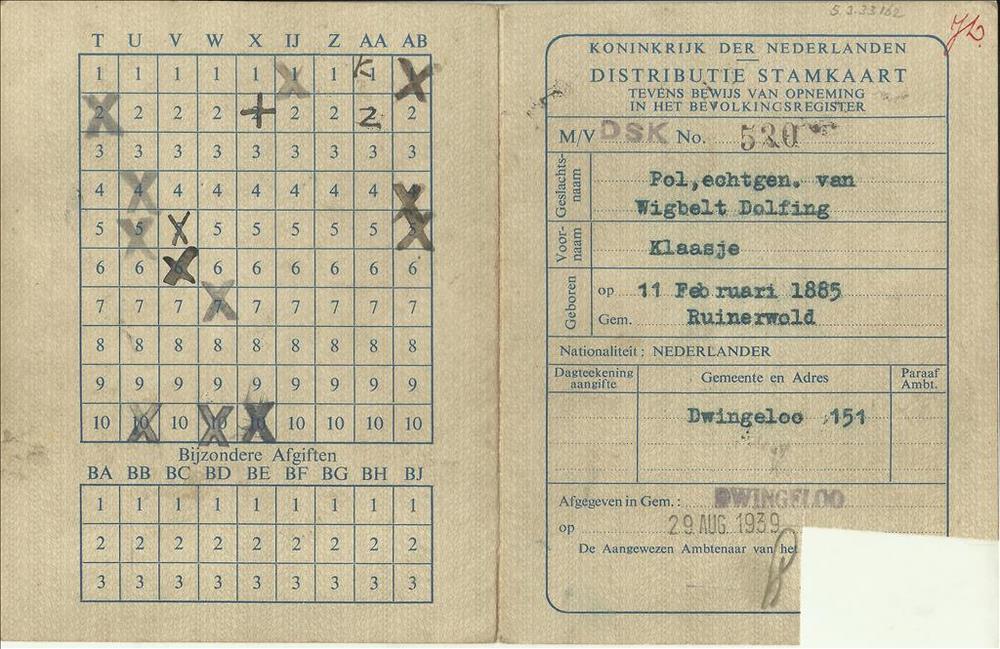 T U V W X IJ Z AA AB
1 1 1 1 1 1 1 K1 1
2 2 2 2 2 2 2 2 2
3 3 3 3 3 3 3 3 3
4 4 4 4 4 4 4 4 4
5 5 5 5 5 5 5 5 5
6 6 6 6 6 6 6 6 6
7 7 7 7 7 7 7 7 7
8 8 8 8 8 8 8 8 8
9 9 9 9 9 9 9 9 9
10 10 10 10 10 10 10 10 10
Bijzondere Afgiften
BA BB BC BD BE BF BG BH BJ
1 1 1 1 1 1 1 1 1
2 2 2 2 2 2 2 2 2
3 3 3 3 3 3 3 3 3
5.3.33162
KONINKRIJK DER NEDERLANDEN
DISTRIBUTIE STAMKAART
TEVENS BEWIJS VAN OPNEMING
IN HET BEVOLKINGSREGISTER
M/V DSK No. 520
Geslachts-
naam
Pol, echtgen. van
Wigbelt Dolfing
Voor-
naam
Klaasje
Geboren
op 11 Februari 1885
Gem. Ruinerwold
Nationaliteit: NEDERLANDER
Dagteekening
aangifte
Gemeente en Adres
Paraaf
Ambt.
Dwingeloo 151
Afgegeven in Gem.: DWINGELOO
op 29 AUG. 1939
De Aangewezen Ambtenaar van het